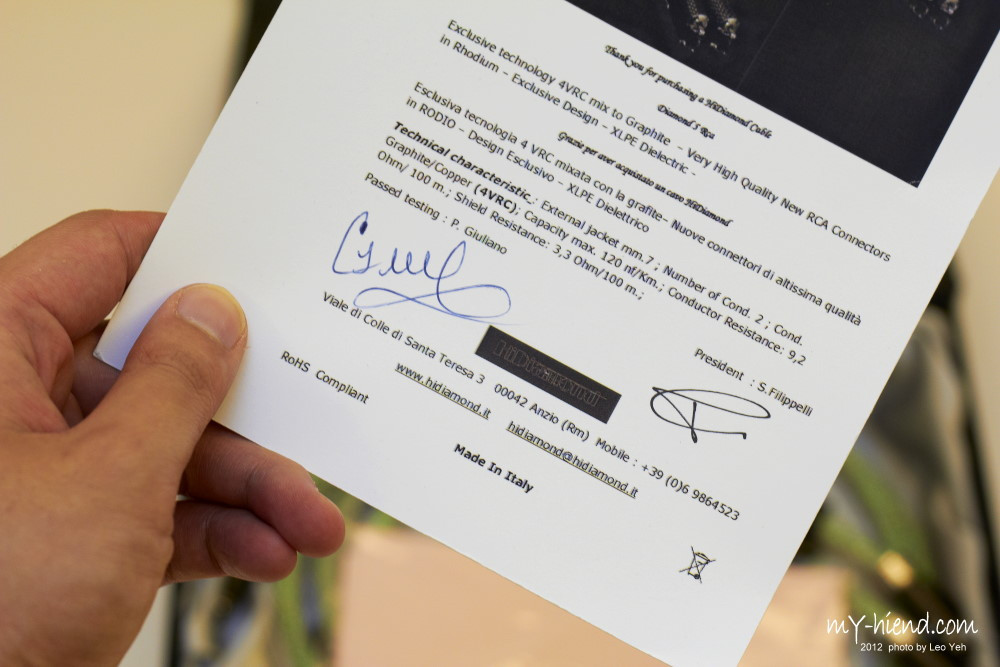 Thank you for purchasing a HiDiamond Cable
Diamond 5 Rca
Exclusive technology 4VRC mix to Graphite - Very High Quality New RCA Connectors
in Rhodium - Exclusive Design - XLPE Dielectric -
Grazie per aver acquistato un cavo HiDiamond
Esclusiva tecnologia 4 VRC mixata con la grafite- Nuove connettori di altissima qualità
in RODIO - Design Esclusivo - XLPE Dielettrico
Technical characteristic : External Jacket mm.7 ; Number of Cond. 2 ; Cond.
Graphite/Copper (4VRC); Capacity max. 120 nf/Km.; Conductor Resistance: 9,2
Ohm/ 100 m.; Shield Resistance: 3,3 Ohm/100 m.;
Passed testing : P. Giuliano
President : S.Filippelli
HiDiamond
Viale di Colle di Santa Teresa 3 00042 Anzio (Rm) Mobile : +39 (0)6 9864523
www.hidiamond.it hidiamond@hidiamond.it
RoHS Compliant
Made In Italy
my-hiend.com
2012 photo by Leo Yeh